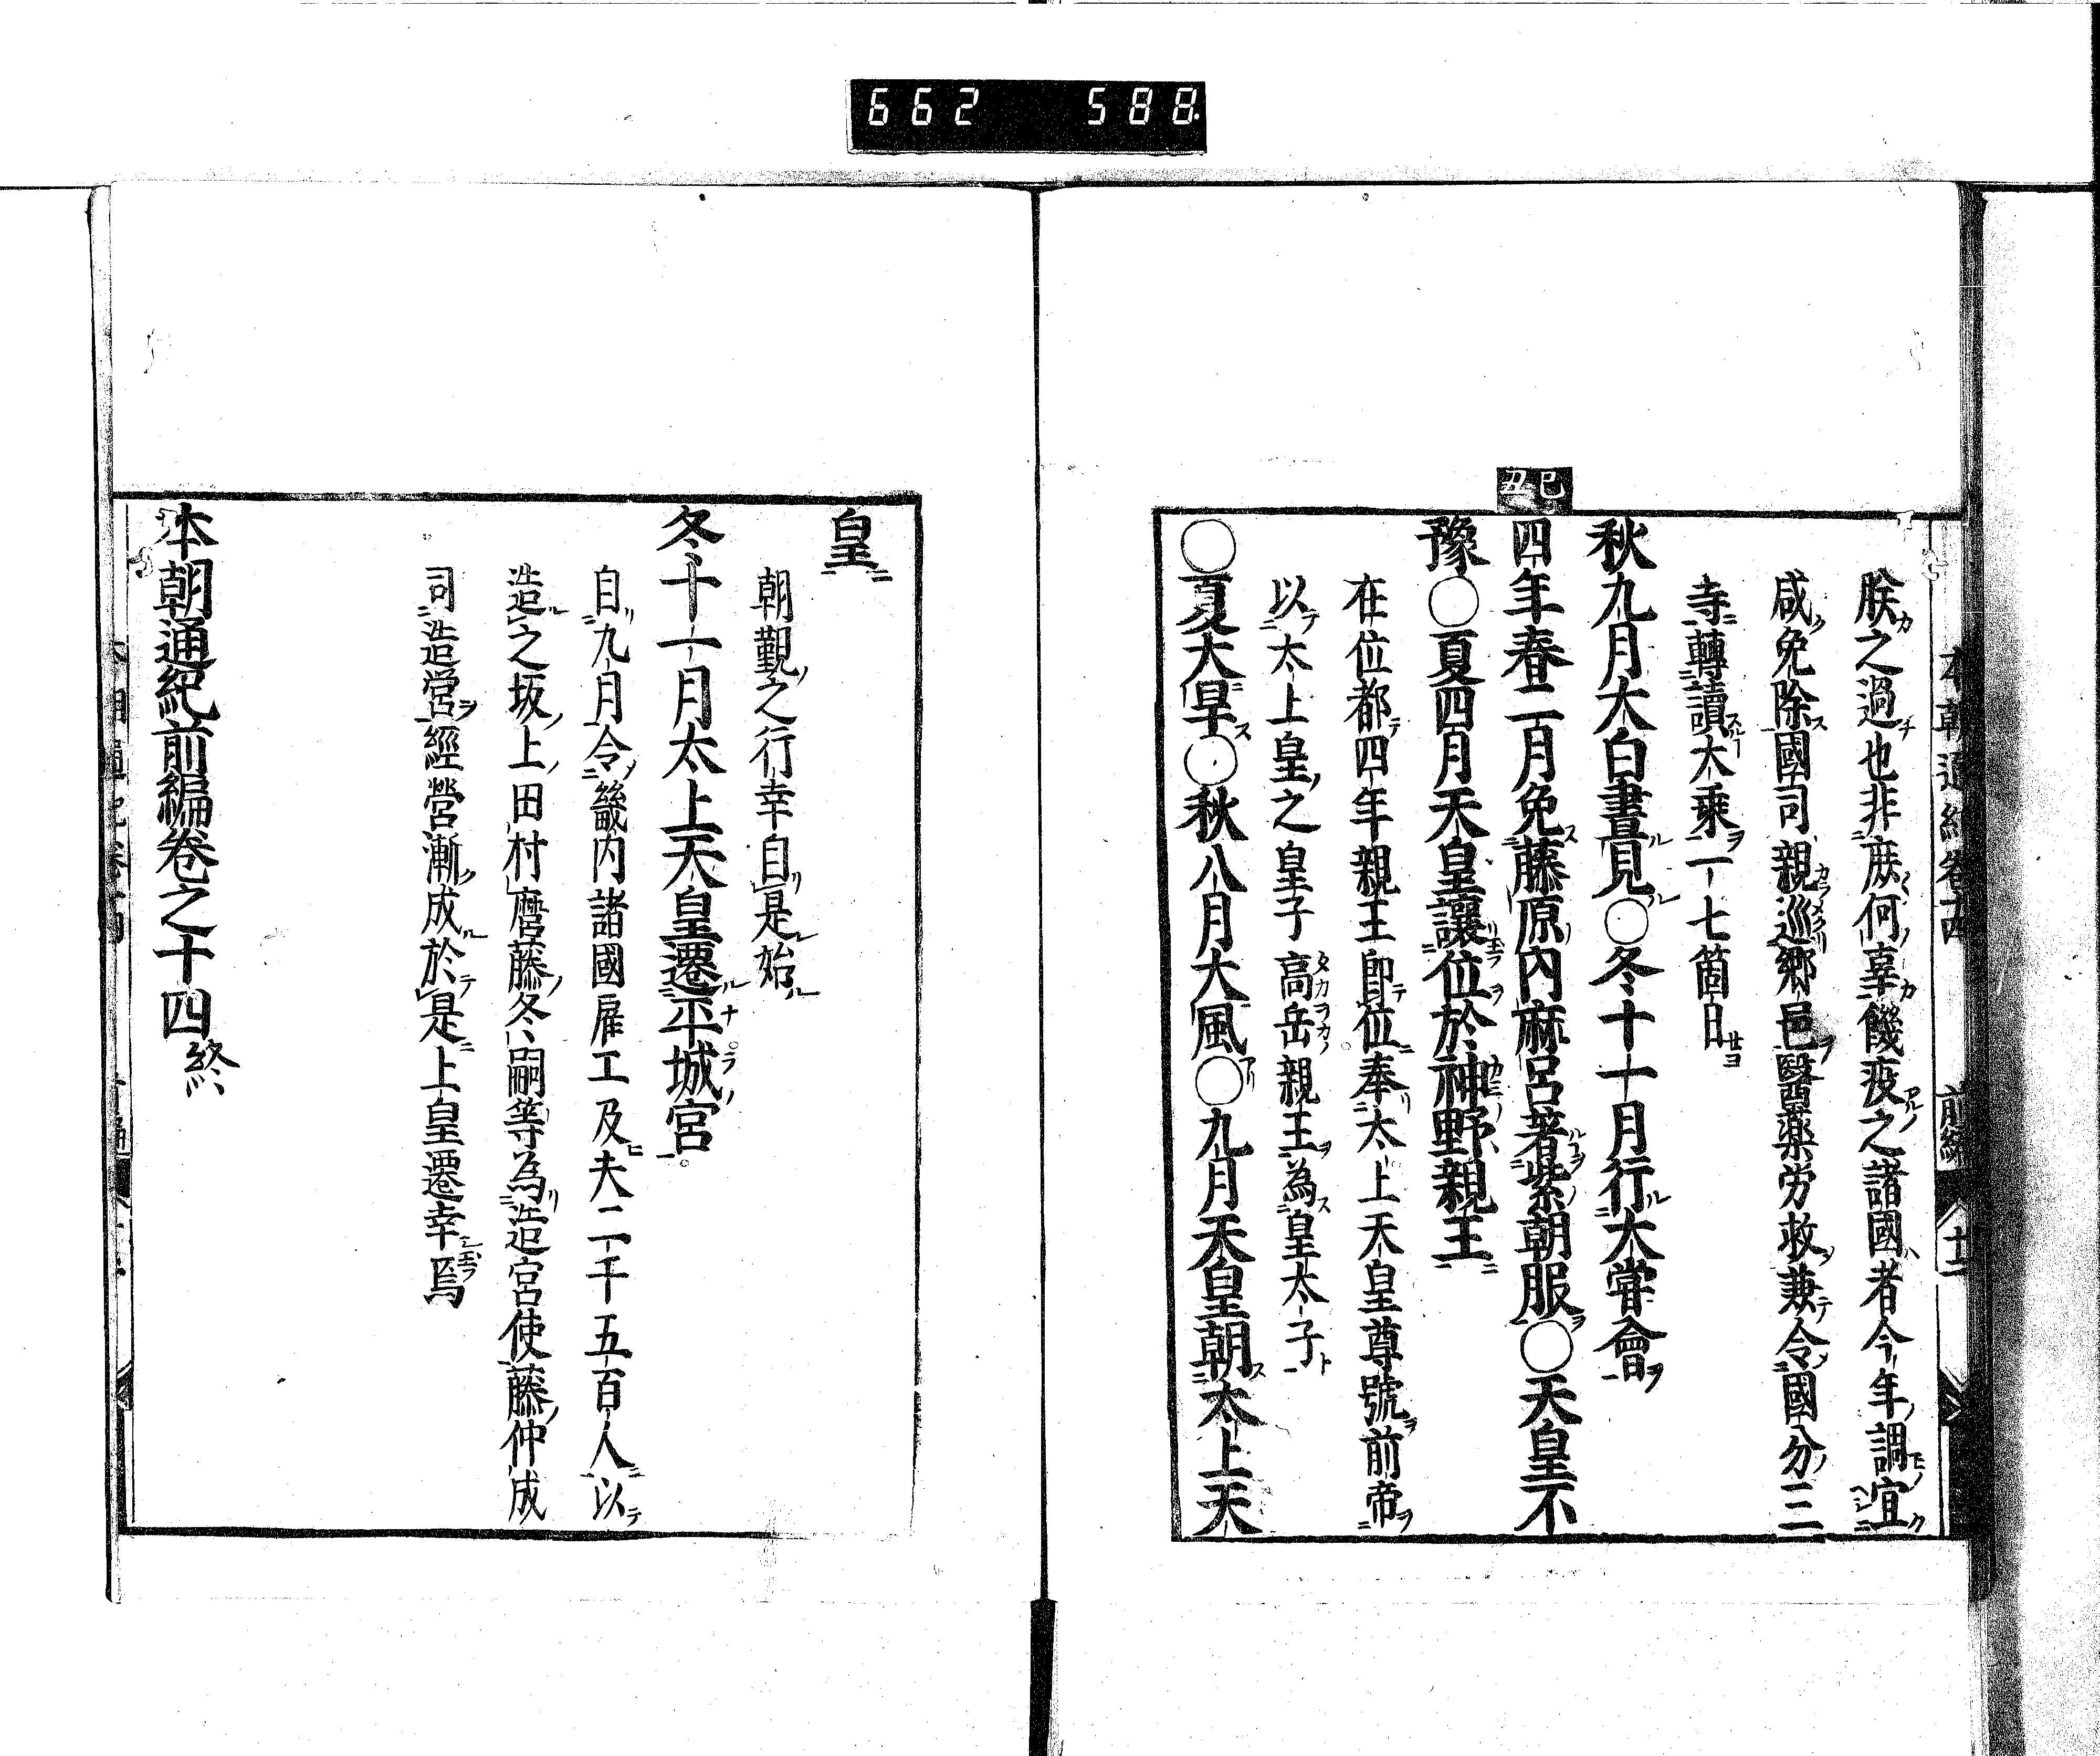 662 588
朕之過也非庶何辜饑疫之諸國者今年調宜
咸免除國司親巡郷邑醫薬労救兼令國分二
寺轉讀大乘一七箇日
秋九月大白晝見○冬十一月行大甞會
己丑
四年春二月免藤原内麻呂著紫朝服○天皇不
豫○夏四月天皇讓位於神野親王
在位都四年親王即位奉太上天皇尊號前帝
以太上皇之皇子高岳親王為皇太子
○夏大旱○秋八月大風○九月天皇朝太上天
皇
朝覲之行幸自是始
冬十一月太上天皇遷平城宮
自九月令畿内諸國雇工及夫二千五百人以
造之坂上田村麿藤冬嗣等為造宮使藤仲成
司造営經營漸成於是上皇遷幸焉
本朝通紀前編卷之十四終